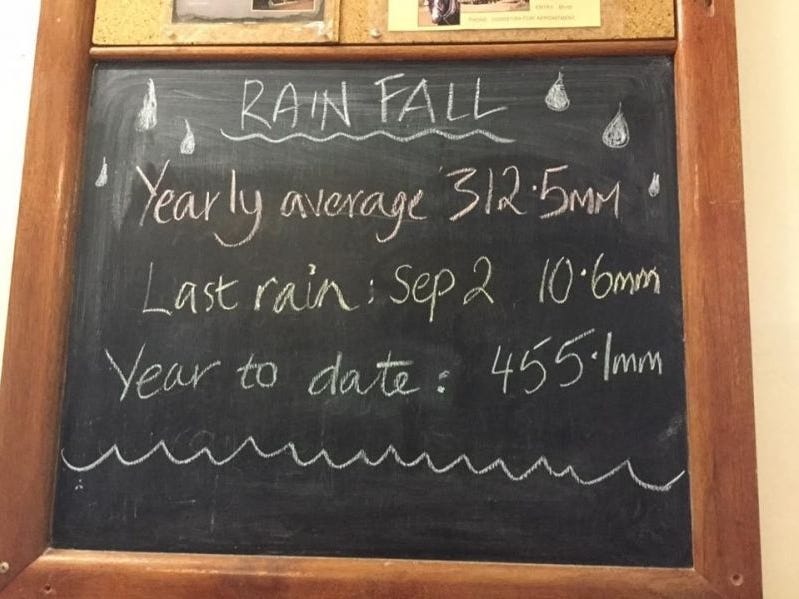 RAIN FALL
Yearly average 312·5mm
Last rain: Sep 2 10·6mm
Year to date: 455·1mm